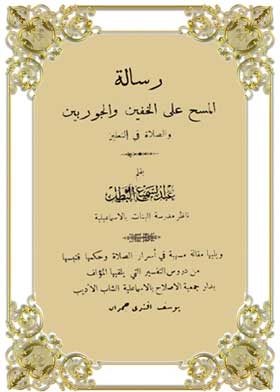 رسالة
المسح على الخفين والجوربين
والصلاة فى النعلين
بقلم
ناظر مدرسة البنات بالاسماعيلية
ويليها مقالة مسهبة فى أسرار الصلاة وحكمها قتبسها
من دروس التفسير التى يلقيها المؤلف
بدار جمعية الاصلاح بالاسماعلية الشاب الاديب
يوسف افندى حمدان